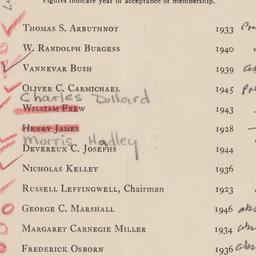 Figures indicate year of acceptance of membership.
THOMAS S. ARBUTHNOT 1933
W. RANDOLPH BURGESS 1940
VANNEVAR BUSH 1939
OLIVER C. CARMICHAEL 1945
Charles Dollard
WILLIAM FREW 1943
HENRY JAMES 1928 —
Morris Hadley
DEVEREUX C. JOSEPHS 1944
NICHOLAS KELLEY 1936
RUSSELL LEFFINGWELL, Chairman 1923
GEORGE C. MARSHALL 1946
MARGARET CARNEGIE MILLER 1934
FREDERICK OSBORN 1936